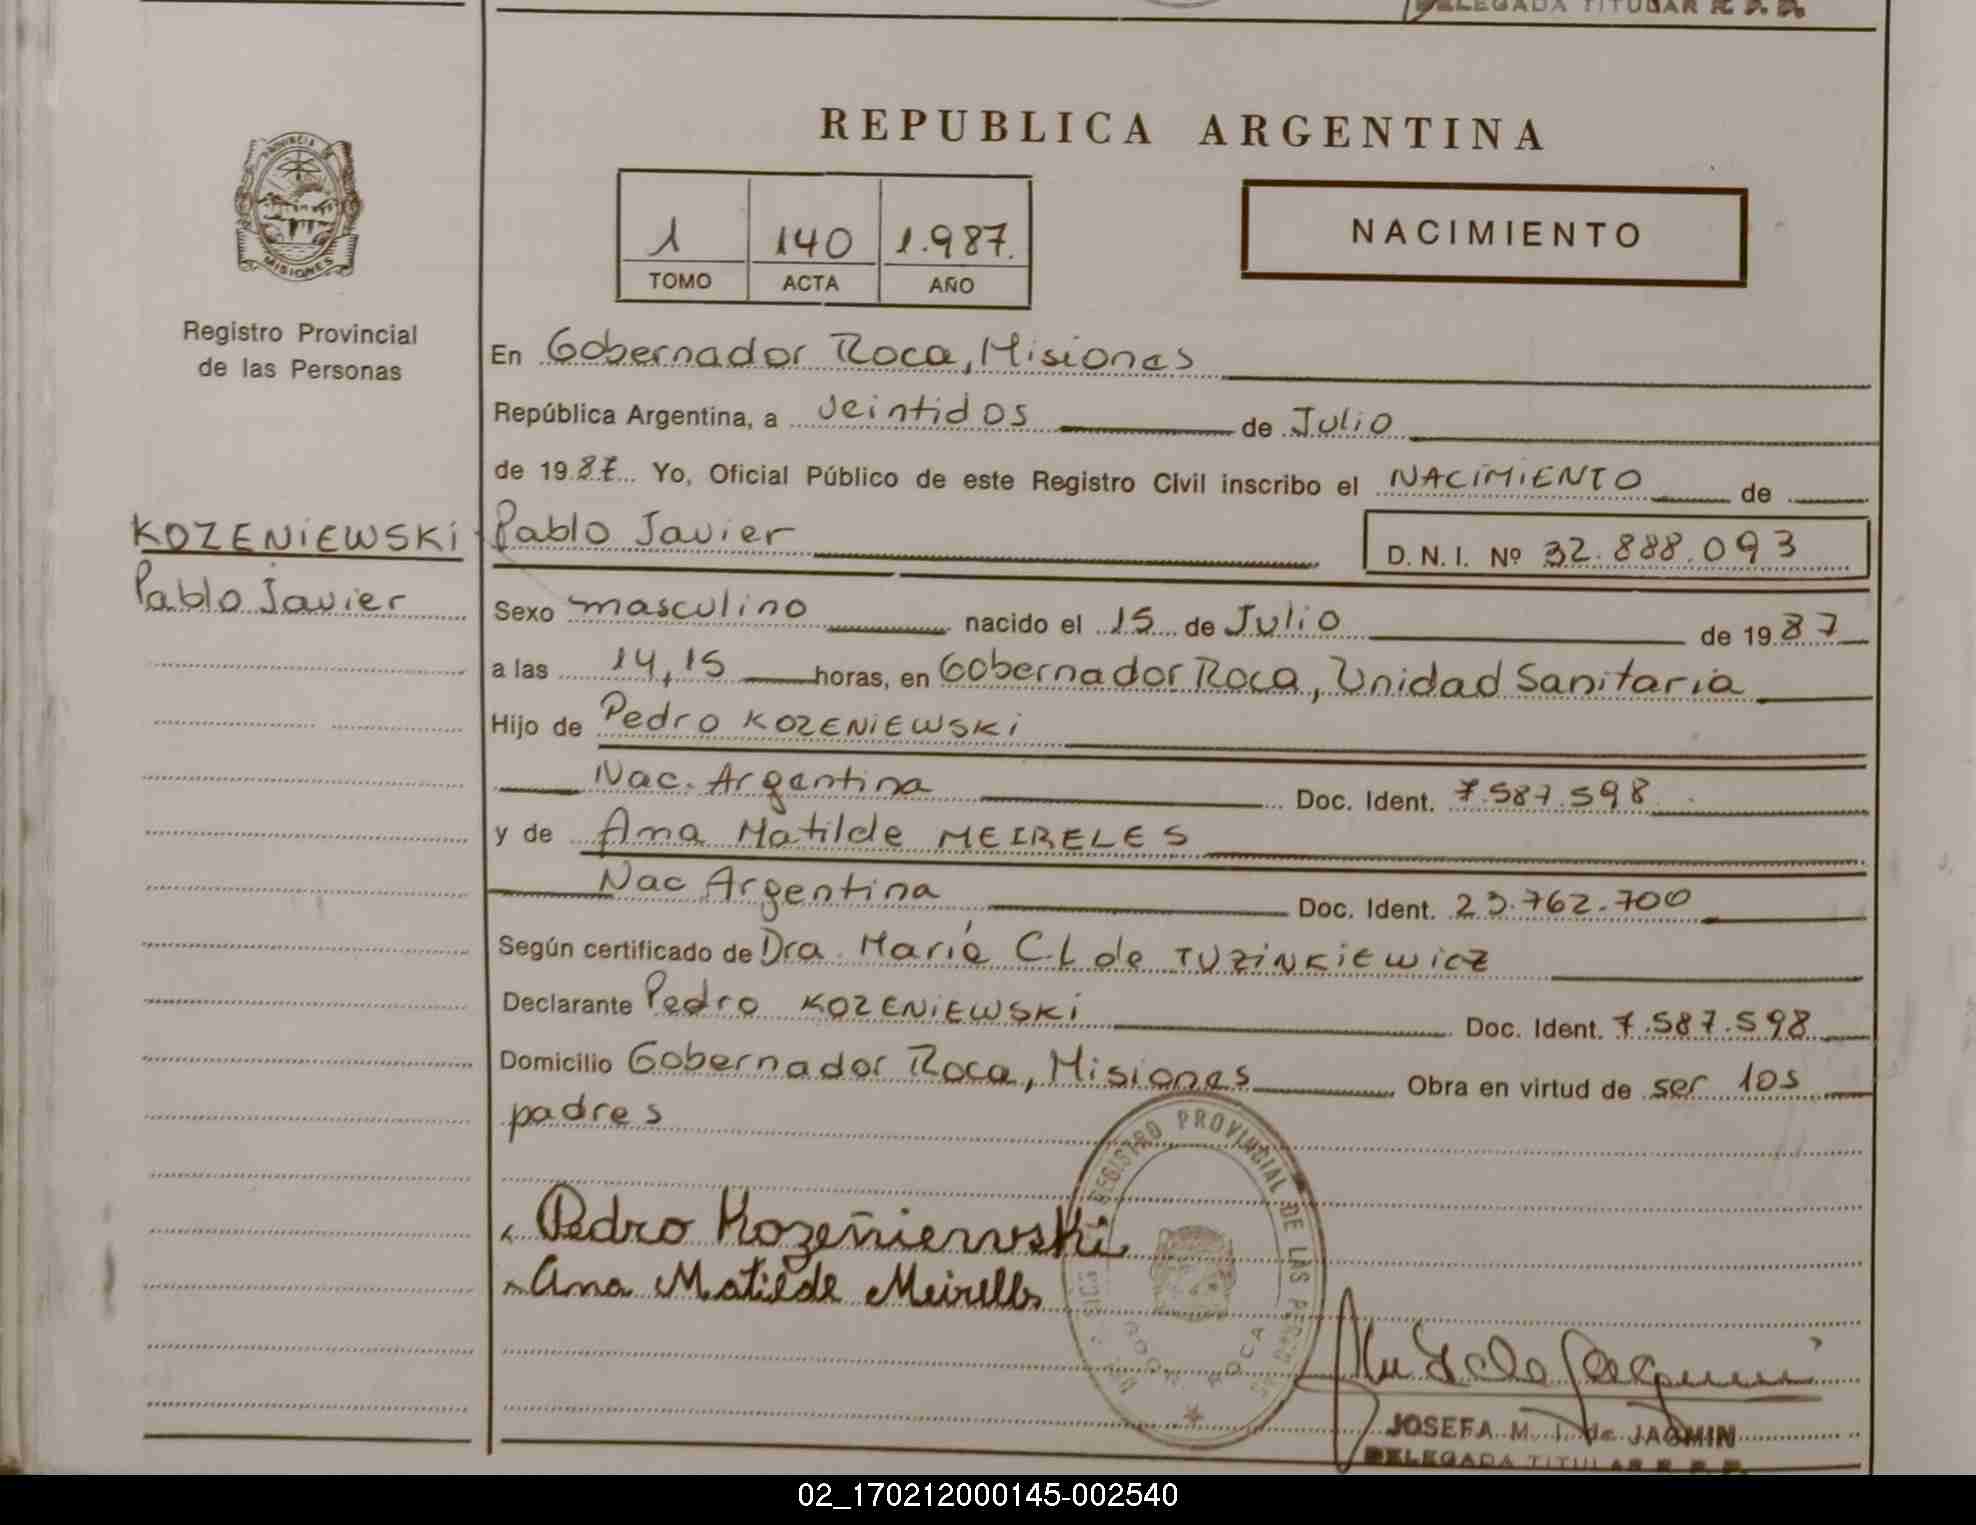 DELEGADA TITULAR R. P. P.
REPUBLICA ARGENTINA
PROVINCIA DE
MISIONES
1 140 1.987.
TOMO ACTA AÑO
NACIMIENTO
Registro Provincial
de las Personas
En Gobernador Roca, Misiones
República Argentina, a veintidos de Julio
de 1987 Yo, Oficial Público de este Registro Civil inscribo el NACIMIENTO de
KOZENIEWSKI Pablo Javier D. N. I. Nº 32.888.093
Pablo Javier
Sexo masculino nacido el 15 de Julio de 1987
a las 14,15 horas, en Gobernador Roca, Unidad Sanitaria
Hijo de Pedro KOZENIEWSKI
Nac. Argentina Doc. Ident. 7.587.598
y de Ana Matilde MEIRELES
Nac Argentina Doc. Ident. 23.762.700
Según certificado de Dra. María C.L de TUZINKIEWICZ
Declarante Pedro KOZENIEWSKI Doc. Ident. 7.587.598
Domicilio Gobernador Roca, Misiones Obra en virtud de ser los
padres
REGISTRO PROVINCIAL DE LAS
ROCA
Pedro Kozeñiewski
Ana Matilde Meirelles
JOSEFA M. I. de JAQMIN
DELEGADA TITULAR R. P. P.
02_170212000145-002540